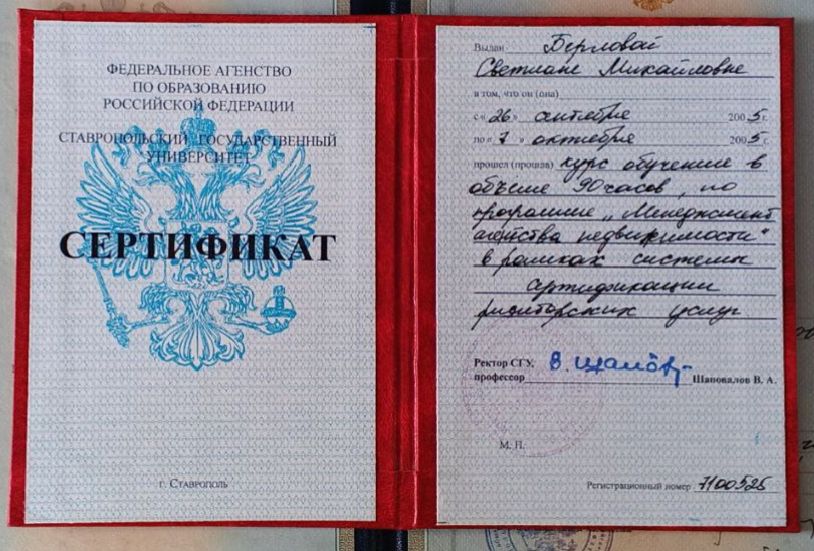 ФЕДЕРАЛЬНОЕ АГЕНСТВО
ПО ОБРАЗОВАНИЮ
РОССИЙСКОЙ ФЕДЕРАЦИИ
СТАВРОПОЛЬСКИЙ ГОСУДАРСТВЕННЫЙ
УНИВЕРСИТЕТ
СЕРТИФИКАТ
г. Ставрополь
Выдан Берловой
Светлане Михайловне
в том, что он (она)
с « 26 » сентября 2005 г.
по « 7 » октября 2005 г.
прошел (прошла) курс обучения в
объеме 90 часов, по
программе „Менеджмент
агентства недвижимости"
в рамках системы
сертификации
риэлторских услуг
Ректор СГУ,
профессор Шаповалов В. А.
М. П.
Регистрационный номер 7100525